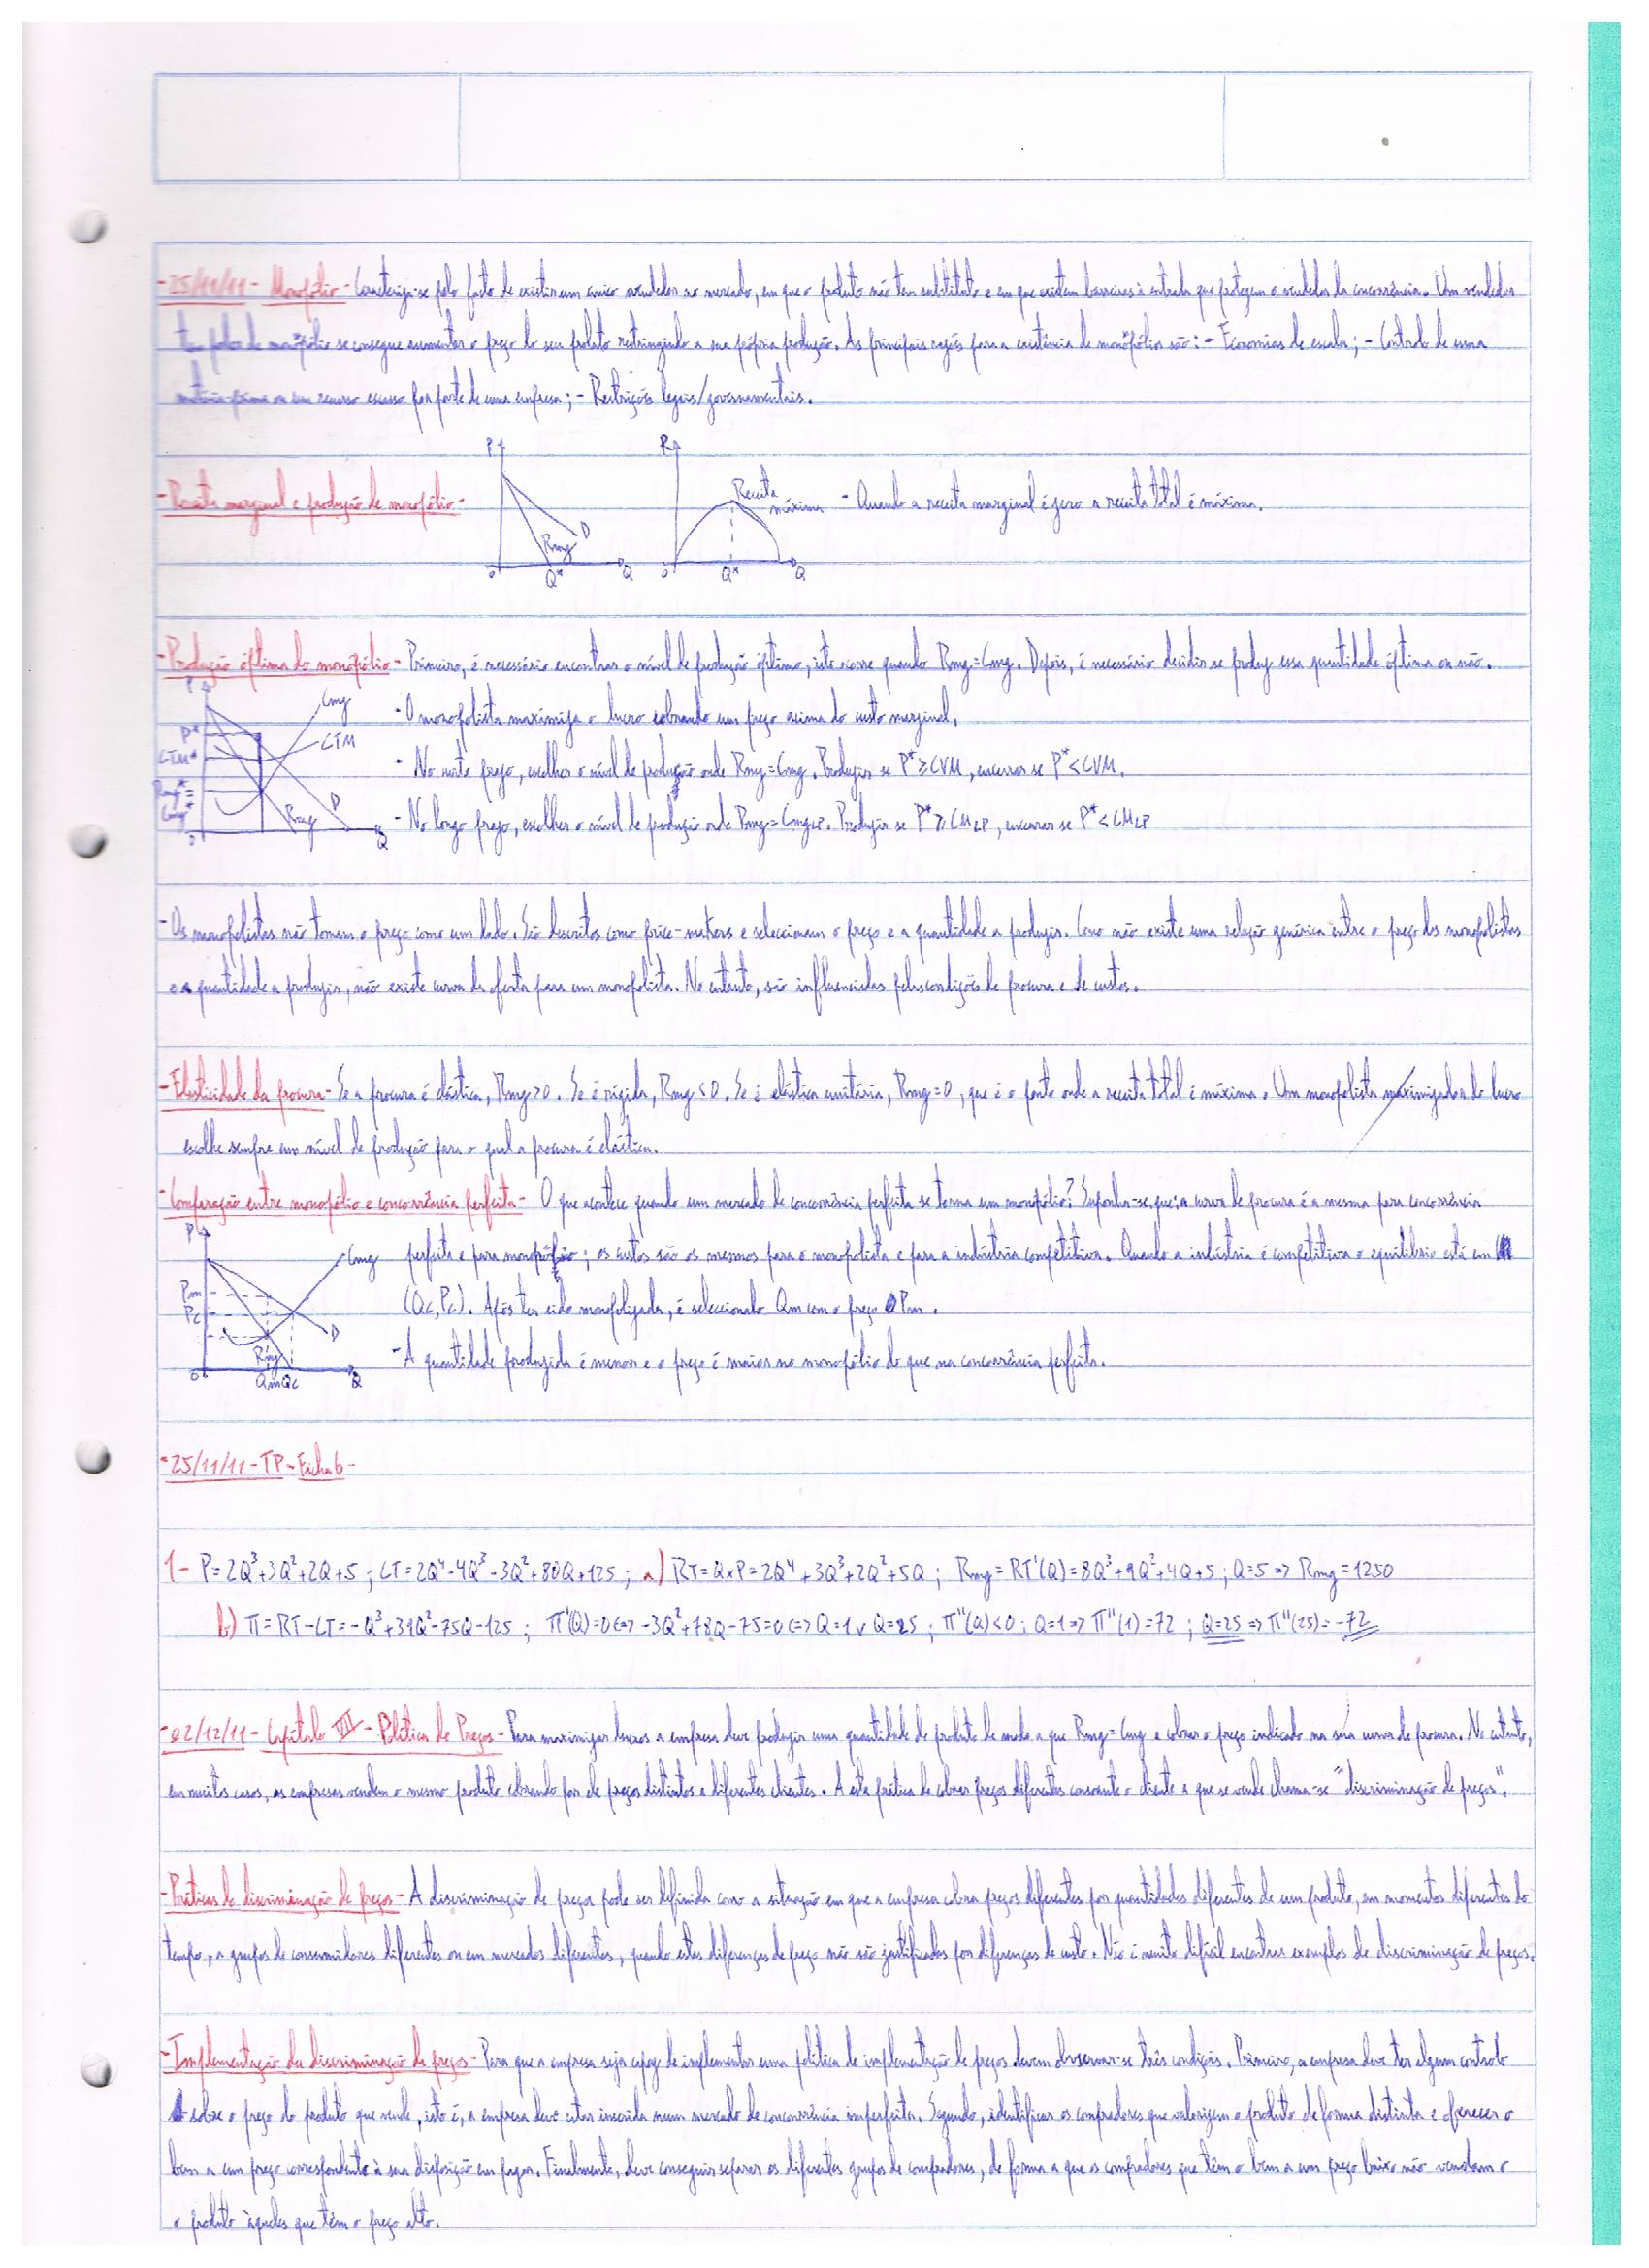 -25/11/11- Monopólio - Caracteriza-se pelo facto de existir um único vendedor no mercado, em que o produto não tem substituto e em que existem barreiras à entrada que protegem o vendedor da concorrência. Um vendedor
tem poder de monopólio se consegue aumentar o preço do seu produto restringindo a sua própria produção. As principais razões para a existência de monopólios são: - Economias de escala; - Controlo de uma
matéria-prima ou um recurso escasso por parte de uma empresa; - Restrições legais/governamentais.
P R
-Receita marginal e produção de monopólio-
Receita máxima
- Quando a receita marginal é zero a receita total é máxima.
Rmg D
0 Q* Q 0 Q* Q
-Produção óptima do monopólio- Primeiro, é necessário encontrar o nível de produção óptimo, isto ocorre quando Rmg=Cmg. Depois, é necessário decidir se produz essa quantidade óptima ou não.
P Cmg
- O monopolista maximiza o lucro cobrando um preço acima do custo marginal.
P* CTM
CTM*
- No curto prazo, escolher o nível de produção onde Rmg=Cmg. Produzir se P*≥CVM, encerrar se P*<CVM.
Rmg*=
Cmg*
Rmg D
0 Q
- No longo prazo, escolher o nível de produção onde Rmg=CmgLP. Produzir se P*≥CMLP, encerrar se P*<CMLP
-Os monopolistas não tomam o preço como um dado. São descritos como price-makers e seleccionam o preço e a quantidade a produzir. Como não existe uma relação genérica entre o preço dos monopolistas
e a quantidade a produzir, não existe curva da oferta para um monopolista. No entanto, são influenciadas pelas condições de procura e de custos.
-Elasticidade da procura- Se a procura é elástica, Rmg>0. Se é rígida, Rmg<0. Se é elástica unitária, Rmg=0, que é o ponto onde a receita total é máxima. Um monopolista maximizador do lucro
escolhe sempre um nível de produção para o qual a procura é elástica.
-Comparação entre monopólio e concorrência perfeita- O que acontece quando um mercado de concorrência perfeita se torna um monopólio? Suponha-se que: a curva de procura é a mesma para concorrência
P Cmg
perfeita e para monopólio; os custos são os mesmos para o monopolista e para a indústria competitiva. Quando a indústria é competitiva o equilíbrio está em
Pm
Pc
(Qc,Pc). Após ter sido monopolizada, é seleccionado Qm com o preço Pm.
D
Rmg
- A quantidade produzida é menor e o preço é maior no monopólio do que na concorrência perfeita.
0 Qm Qc Q
-25/11/11-TP-Ficha 6-
1- P=2Q³+3Q²+2Q+5; CT=2Q⁴-4Q³-3Q²+80Q+125; a) RT=Q×P=2Q⁴+3Q³+2Q²+5Q; Rmg=RT'(Q)=8Q³+9Q²+4Q+5; Q=5=>Rmg=1250
b) Π=RT-CT=-Q³+39Q²-75Q-125; Π'(Q)=0<=>-3Q²+78Q-75=0<=>Q=1∨Q=25; Π''(Q)<0: Q=1=>Π''(1)=72; Q=25=>Π''(25)=-72
-02/12/11- Capítulo VII - Política de Preços- Para maximizar lucros a empresa deve produzir uma quantidade de produto de modo a que Rmg=Cmg e cobrar o preço indicado na sua curva de procura. No entanto,
em muitos casos, as empresas vendem o mesmo produto cobrando por ele preços distintos a diferentes clientes. A esta prática de cobrar preços diferentes consoante o cliente a que se vende chama-se "discriminação de preços".
-Práticas de discriminação de preços- A discriminação de preços pode ser definida como a situação em que a empresa cobra preços diferentes por quantidades diferentes de um produto, em momentos diferentes do
tempo, a grupos de consumidores diferentes ou em mercados diferentes, quando estas diferenças de preço não são justificadas por diferenças de custo. Não é muito difícil encontrar exemplos de discriminação de preços.
-Implementação da discriminação de preços- Para que a empresa seja capaz de implementar uma política de implementação de preços devem observar-se três condições. Primeiro, a empresa deve ter algum controlo
sobre o preço do produto que vende, isto é, a empresa deve estar inserida num mercado de concorrência imperfeita. Segundo, identificar os compradores que valorizem o produto de forma distinta e oferecer o
bem a um preço correspondente à sua disposição em pagar. Finalmente, deve conseguir separar os diferentes grupos de compradores, de forma a que os compradores que têm o bem a um preço baixo não vendam o
o produto àqueles que têm o preço alto.